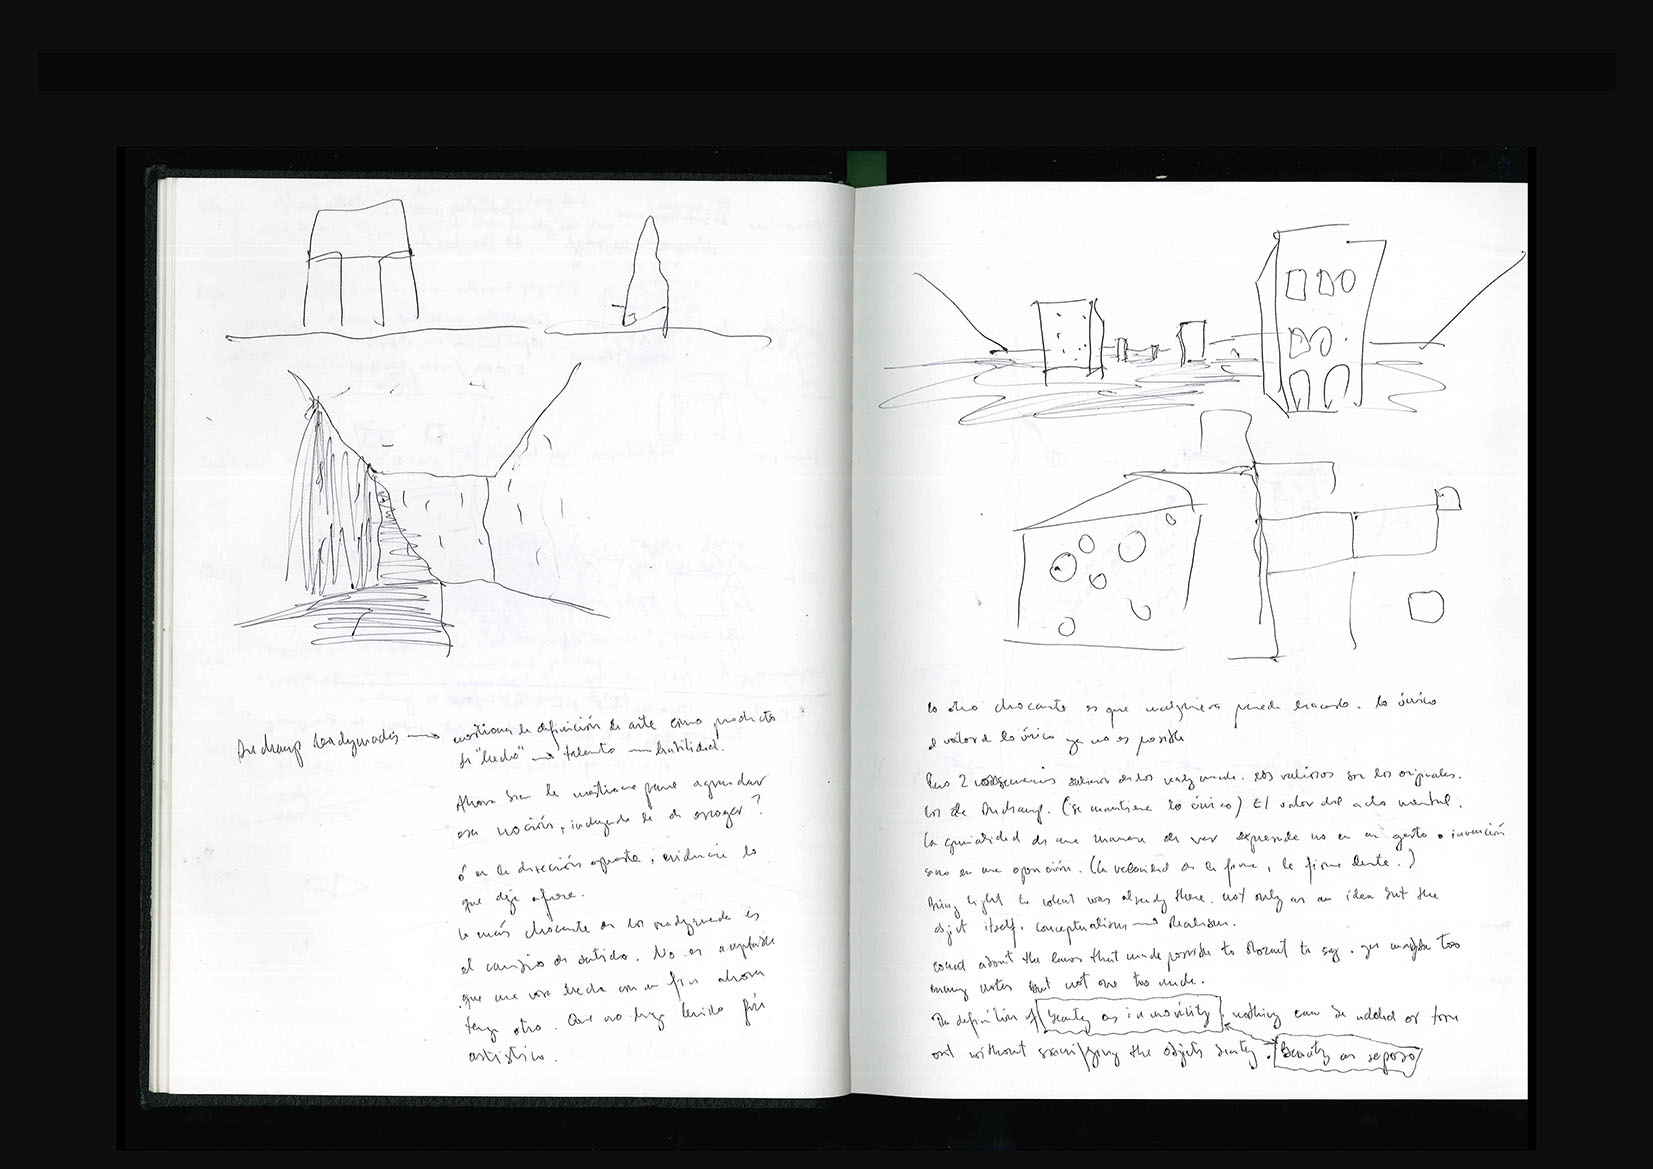 Duchamp readymades → cuestionar la definición de arte como producto
de "hecho" → talento — habilidad.
Ahora bien se cuestiona para agrandar
esa noción, incluyendo la de escoger?
ó en la dirección opuesta, evidencia lo
que deja afuera.
lo más chocante de los readymade es
el cambio de sentido. No es aceptable
que una cosa hecha con un fin ahora
tenga otro. Que no haya tenido fin
artístico.
lo otro chocante es que cualquiera puede hacerlo. lo único
el valor de lo único ya no es posible
Pero 2 consecuencias salieron de los ready made. los valiosos son los originales.
los de Duchamp. (se mantiene lo único) El valor del acto mental.
la genialidad de una manera de ver expresada no en un gesto o invención
sino en una operación. (la velocidad de la firma, la firma lenta.)
Bring light to what was already there. not only as an idea but the
object itself. conceptualism → Realism.
about the laws that made possible to Mozart to say. yes maybe too
many notes but not one too much.
The definition of beauty as inmovility, nothing can be added or torn
out without sacrifying the objects beauty. Beauty as reposo